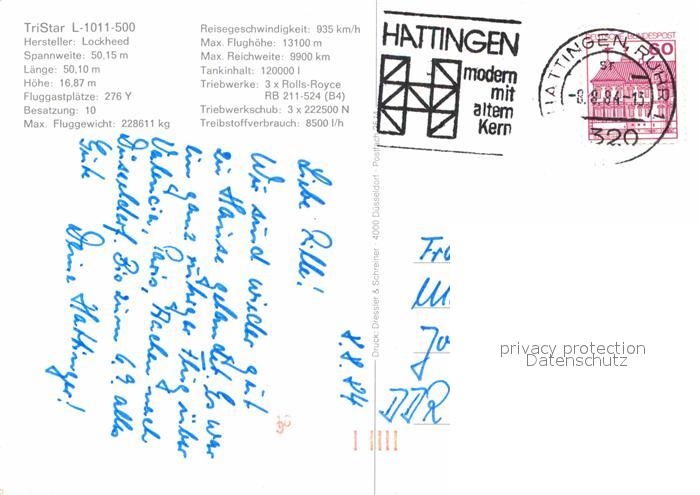 TriStar L-1011-500
Hersteller: Lockheed
Spannweite: 50,15 m
Länge: 50,10 m
Höhe: 16,87 m
Fluggastplätze: 276 Y
Besatzung: 10
Max. Fluggewicht: 228611 kg
Reisegeschwindigkeit: 935 km/h
Max. Flughöhe: 13100 m
Max. Reichweite: 9900 km
Tankinhalt: 120000 l
Triebwerke: 3 x Rolls-Royce
RB 211-524 (B4)
Triebwerkschub: 3 x 222500 N
Treibstoffverbrauch: 8500 l/h
HATTINGEN
modern
mit
altem
Kern
HATTINGEN, RUHR 1
-8.8.84-15
320
DEUTSCHE BUNDESPOST
60
8.8.84
Liebe Rille!
Wir sind wieder gut
zu Hause gelandet. Es war
ein ganz ruhiger Flug über
Valencia, Paris, Aachen nach
Düsseldorf. Bis zum 6.9. alles
Gute
Deine Hattinger!
Druck: Dressler & Schreiner · 4000 Düsseldorf · Postfach
Fra
DDR
privacy protection
Datenschutz